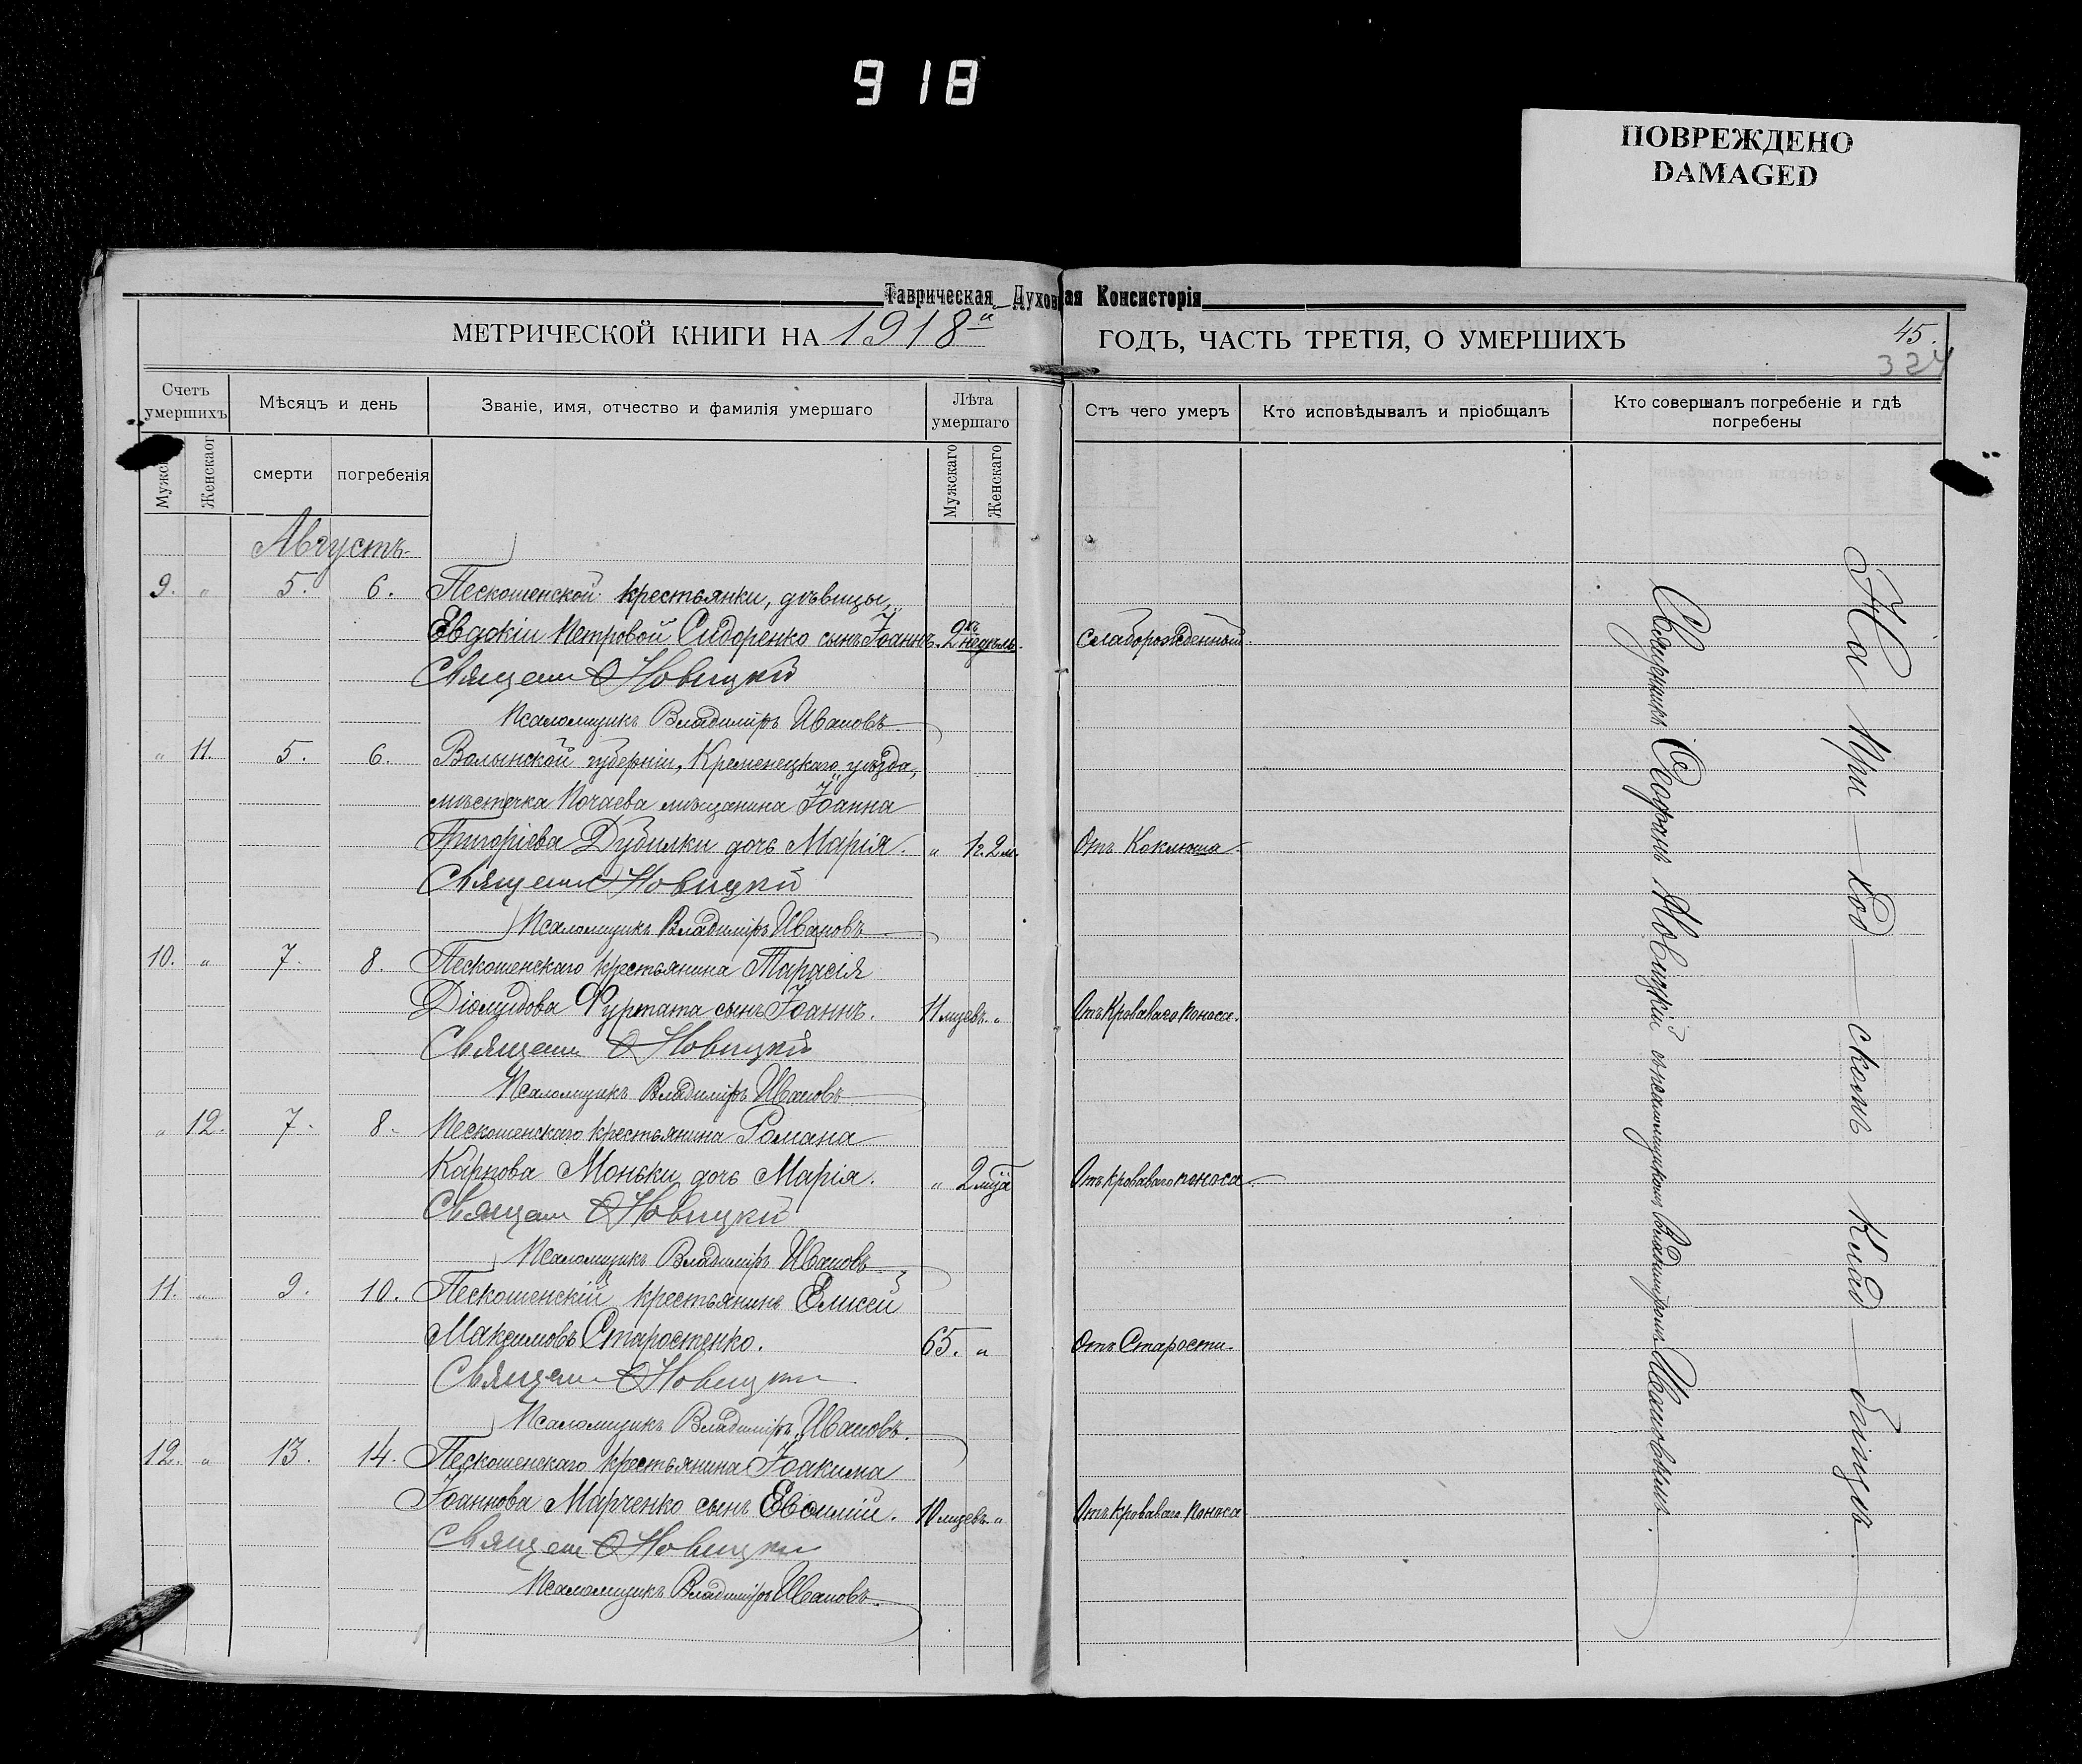 918
ПОВРЕЖДЕНО
DAMAGED
Таврическая Духовная Консисторія
МЕТРИЧЕСКОЙ КНИГИ НА 1918й ГОДЪ, ЧАСТЬ ТРЕТІЯ, О УМЕРШИХЪ
45.
324
Счетъ умершихъ
Мѣсяцъ и день
Званіе, имя, отчество и фамилія умершаго
Лѣта умершаго
Отъ чего умеръ
Кто исповѣдывалъ и пріобщалъ
Кто совершалъ погребеніе и гдѣ погребены
Женскаго
смерти
погребенія
Мужскаго
Женскаго
Августъ
9. " 5. 6. Пескошенской крестьянки, дѣвицы,
Евдокіи Петровой Сидоренко сынъ Іоаннъ. недѣль. Слаборожденный.
Священ Новицкій
Псаломщикъ Владиміръ Ивановъ
" 11. 5. 6 Волынской губерніи, Кременецкаго уѣзда,
мѣстечка Почаева мѣщанина Іоанна
Григорієва Дубилки дочь Марія. " 1г. 2м. Отъ Коклюша.
Священ Новицкій
Псаломщикъ Владиміръ Ивановъ
10. " 7. 8. Пескошенскаго крестьянина Тарасія
Діомидова Фуртата сынъ Іоаннъ. 11 мцевъ. " Отъ Кроваваго поноса.
Священ Новицкій
Псаломщикъ Владиміръ Ивановъ
" 12. 7. 8. Пескошенскаго крестьянина Романа
Карпова Моньки дочь Марія. " 2 мца Отъ кроваваго поноса.
Священ Новицкій
Псаломщикъ Владиміръ Ивановъ
11. " 9. 10. Пескошенскій крестьянинъ Елисей
Максимовъ Старостенко. 65. " Отъ Старости.
Священ Новицкій
Псаломщикъ Владиміръ Ивановъ.
12. " 13. 14. Пескошенскаго крестьянина Іоакима
Іоаннова Марченко сынъ Евѳимій. 10 мцевъ. " Отъ кроваваго поноса
Священ Новицкій
Псаломщикъ Владиміръ Ивановъ.
Новицкій съ псаломщикомъ Владиміромъ Ивановымъ.
На При-ход-скомъ Клад-бищѣ.